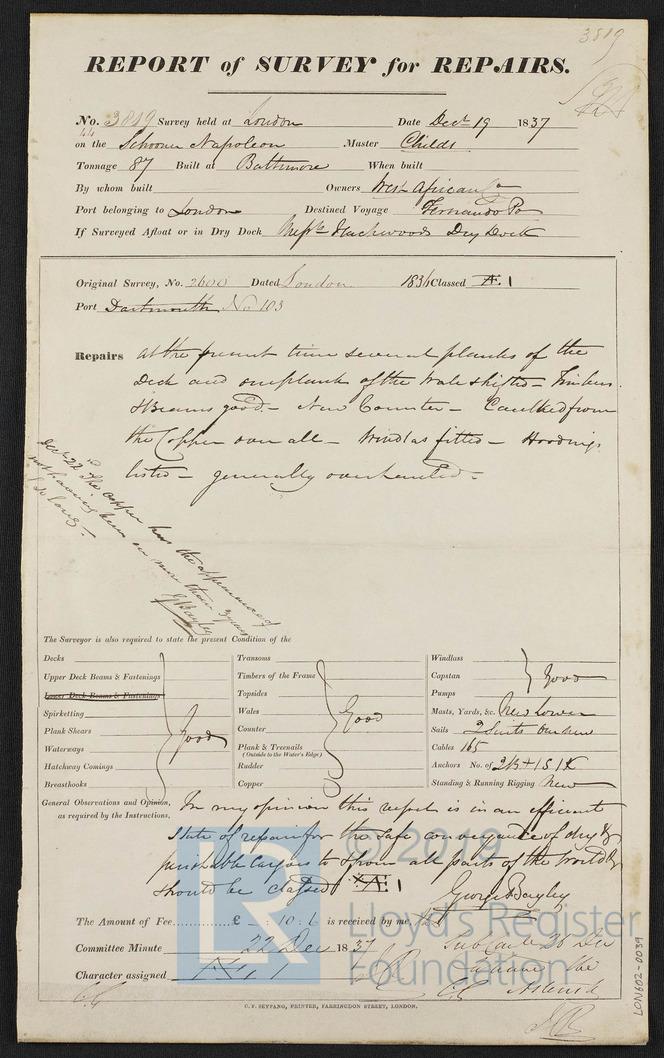 3819
REPORT of SURVEY for REPAIRS.
No. 3819 Survey held at London Date Decr 19 1837
44
on the Schooner Napoleon Master Childs
Tonnage 87 Built at Baltimore When built
By whom built Owners West African Co
Port belonging to London Destined Voyage Fernando Po
If Surveyed Afloat or in Dry Dock Messrs Fletchwoods Dry Dock
Original Survey, No. 2600 Dated London 1836 Classed Æ. 1
Port Dartmouth No 103
Repairs at the present time several planks of the
Deck and one plank of the Wale shifted – Timbers
& Beams good – New Counter – Caulked from
the Copper over all – Windlass fitted – Hoodings
listed – generally overhauled –
Decr 22 The copper has the appearance of
not having been on more than 3 years
so long –
G Bayley
The Surveyor is also required to state the present Condition of the
Decks
Upper Deck Beams & Fastenings
Lower Deck Beams & Fastenings
Spirketting
Plank Shears
Waterways
Hatchway Comings
Breasthooks
Good
Transoms
Timbers of the Frame
Topsides
Wales
Counter
Plank & Treenails
(Outside to the Water's Edge)
Rudder
Copper
Good
Windlass
Capstan
Pumps
Good
Masts, Yards, &c. New Lower
Sails 2 Suits
Cables 165
Anchors No. of 2/3 + 1 S 1 K
Standing & Running Rigging New
General Observations and Opinion,
as required by the Instructions,
In my opinion this vessel is in an efficient
state of repair for the safe conveyance of dry &
perishable cargoes to & from all parts of the World &
should be classed Æ 1
George Bayley
The Amount of Fee £ : 10 : 6 is received by me,
Committee Minute 22 Dec 1837
Character assigned Æ 1
Sub Comtee 26 Dec
the
Asterisk
C.F. SEYFANG, PRINTER, FARRINGDON STREET, LONDON.
LON602-0039
© 2019
LR
Lloyd's Register
Foundation